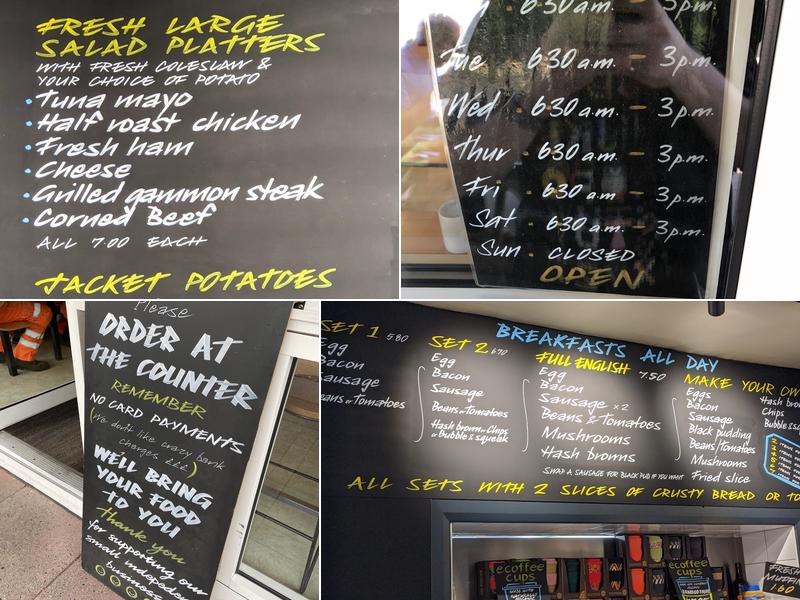 FRESH LARGE
SALAD PLATTERS
WITH FRESH COLESLAW &
YOUR CHOICE OF POTATO
• Tuna mayo
• Half roast chicken
• Fresh ham
• Cheese
• Grilled gammon steak
• Corned Beef
ALL 7.00 EACH
JACKET POTATOES
630 a.m. - 3p.m.
Tue 630 a.m. - 3p.m.
Wed • 630 a.m. - 3p.m.
Thur • 630 a.m. - 3p.m.
Fri • 630 a.m. - 3p.m.
Sat • 630 a.m. - 3p.m.
Sun • CLOSED
OPEN
Please
ORDER AT
THE COUNTER
REMEMBER
NO CARD PAYMENTS
(We don't like crazy bank
charges £££)
WE'LL BRING
YOUR FOOD
TO YOU
thank you
for supporting our
small
business
BREAKFASTS ALL DAY
SET 1 5.80
Egg
Bacon
Sausage
Beans or Tomatoes
SET 2 6.70
Egg
Bacon
Sausage
Beans or Tomatoes
Hash brown or Chips
or Bubble & squeak
FULL ENGLISH 7.50
Egg
Bacon
Sausage x2
Beans & Tomatoes
Mushrooms
Hash browns
SWAP A SAUSAGE FOR BLACK PUD IF YOU WANT
MAKE YOUR OW
Eggs
Bacon
Sausage
Black pudding
Beans/Tomatoes
Mushrooms
Fried slice
Hash brow
Chips
Bubble & s
ALL SETS WITH 2 SLICES OF CRUSTY BREAD OR TO
ecoffee
cups
ecoffee
CUPS
FRESH
MUFFIN
1.60